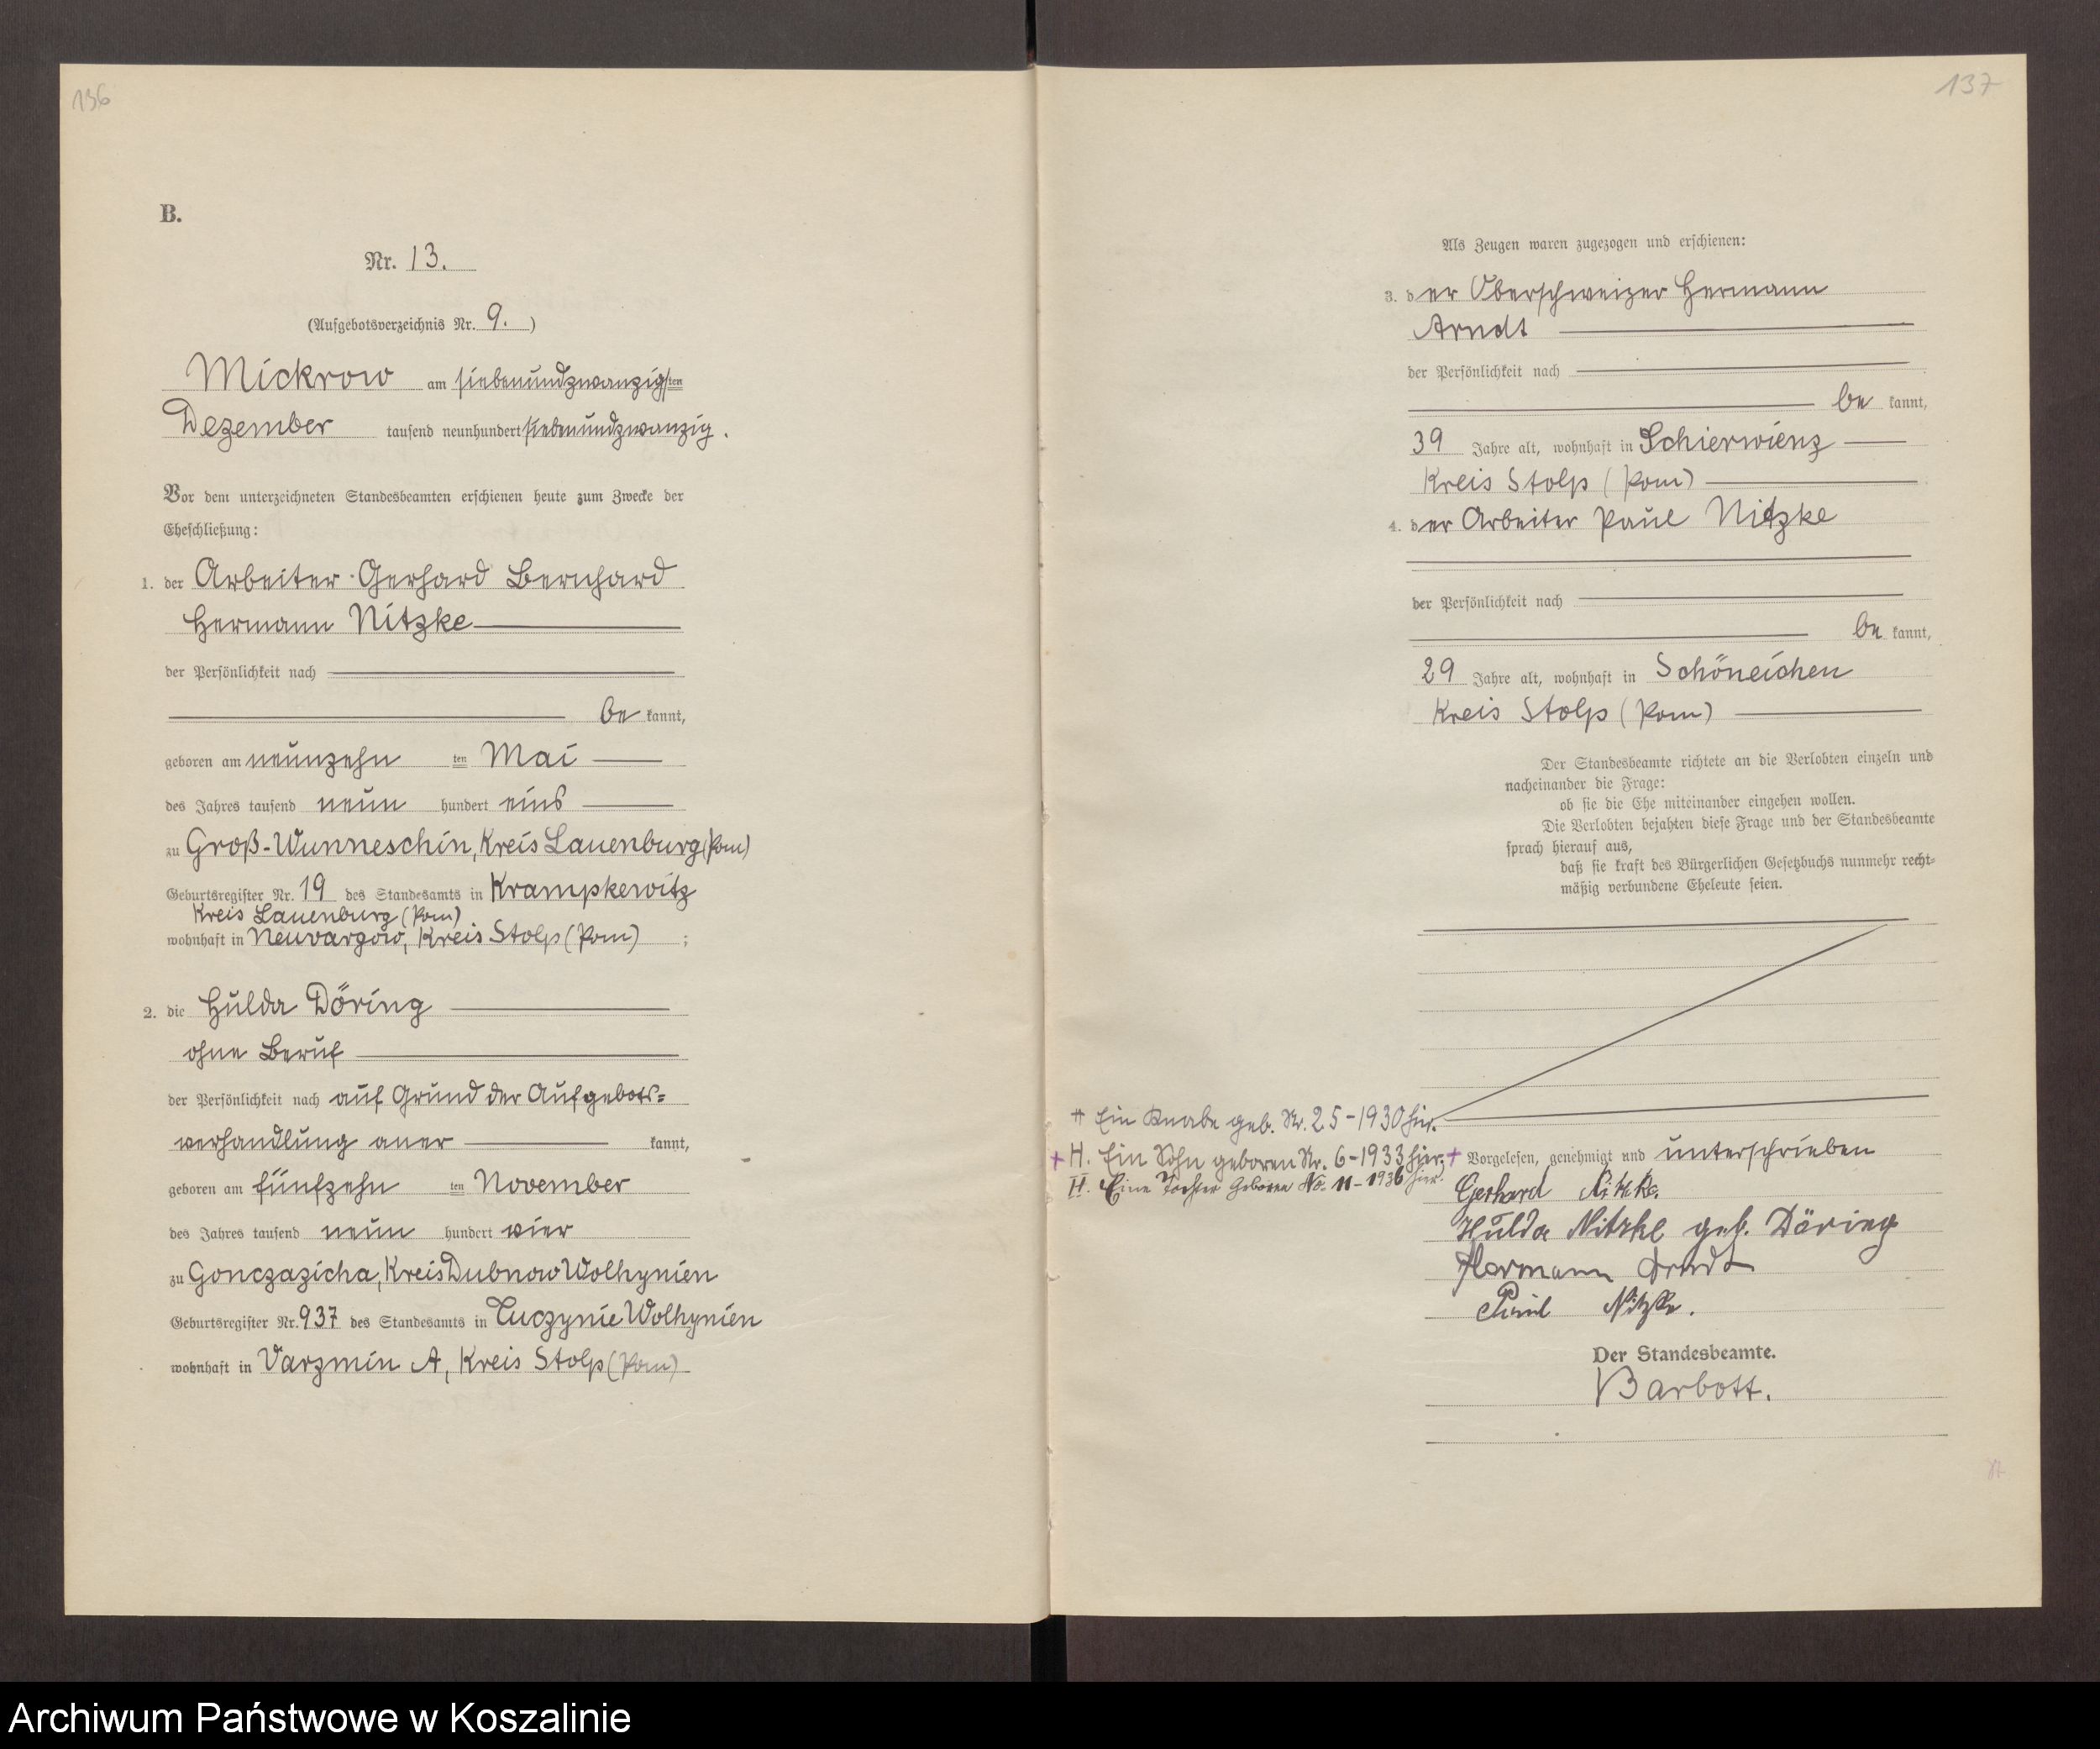 136
B.
Nr. 13.
(Aufgebotsverzeichnis Nr. 9. )
Mickrow am siebenundzwanzigsten
Dezember tausend neunhundert siebenundzwanzig.
Vor dem unterzeichneten Standesbeamten erschienen heute zum Zwecke der
Eheschließung:
1. der Arbeiter Gerhard Bernhard
Hermann Nitzke
der Persönlichkeit nach
be kannt,
geboren am neunzehn ten Mai
des Jahres tausend neun hundert eins
zu Groß-Wunneschin, Kreis Lauenburg (Pom)
Geburtsregister Nr. 19 des Standesamts in Krampkewitz
Kreis Lauenburg (Pom)
wohnhaft in Neuvargow, Kreis Stolp (Pom) ;
2. die Hulda Döring
ohne Beruf
der Persönlichkeit nach auf Grund der Aufgebots=
verhandlung aner kannt,
geboren am fünfzehn ten November
des Jahres tausend neun hundert vier
zu Gonczazicha, Kreis Dubnow Wolhynien
Geburtsregister Nr. 937 des Standesamts in Tuczynie Wolhynien
wohnhaft in Varzmin A, Kreis Stolp (Pom)
137
Als Zeugen waren zugezogen und erschienen:
3. der Oberschweizer Hermann
Arndt
der Persönlichkeit nach
be kannt,
39 Jahre alt, wohnhaft in Schierwienz
Kreis Stolp (Pom)
4. der Arbeiter Paul Nitzke
der Persönlichkeit nach
be kannt,
29 Jahre alt, wohnhaft in Schöneichen
Kreis Stolp (Pom)
Der Standesbeamte richtete an die Verlobten einzeln und
nacheinander die Frage:
ob sie die Ehe miteinander eingehen wollen.
Die Verlobten bejahten diese Frage und der Standesbeamte
sprach hierauf aus,
daß sie kraft des Bürgerlichen Gesetzbuchs nunmehr recht=
mäßig verbundene Eheleute seien.
Ein Knabe geb. Nr. 25-1930 hier.
+ H. Ein Sohn geboren Nr. 6-1933 hier. +
H. Eine Tochter geboren No. 11-1936 hier.
Vorgelesen, genehmigt und unterschrieben
Gerhard Nitzke.
Hulda Nitzke geb. Döring
Hermann Arndt
Paul Nitzke.
Der Standesbeamte.
Barbott.
Archiwum Państwowe w Koszalinie